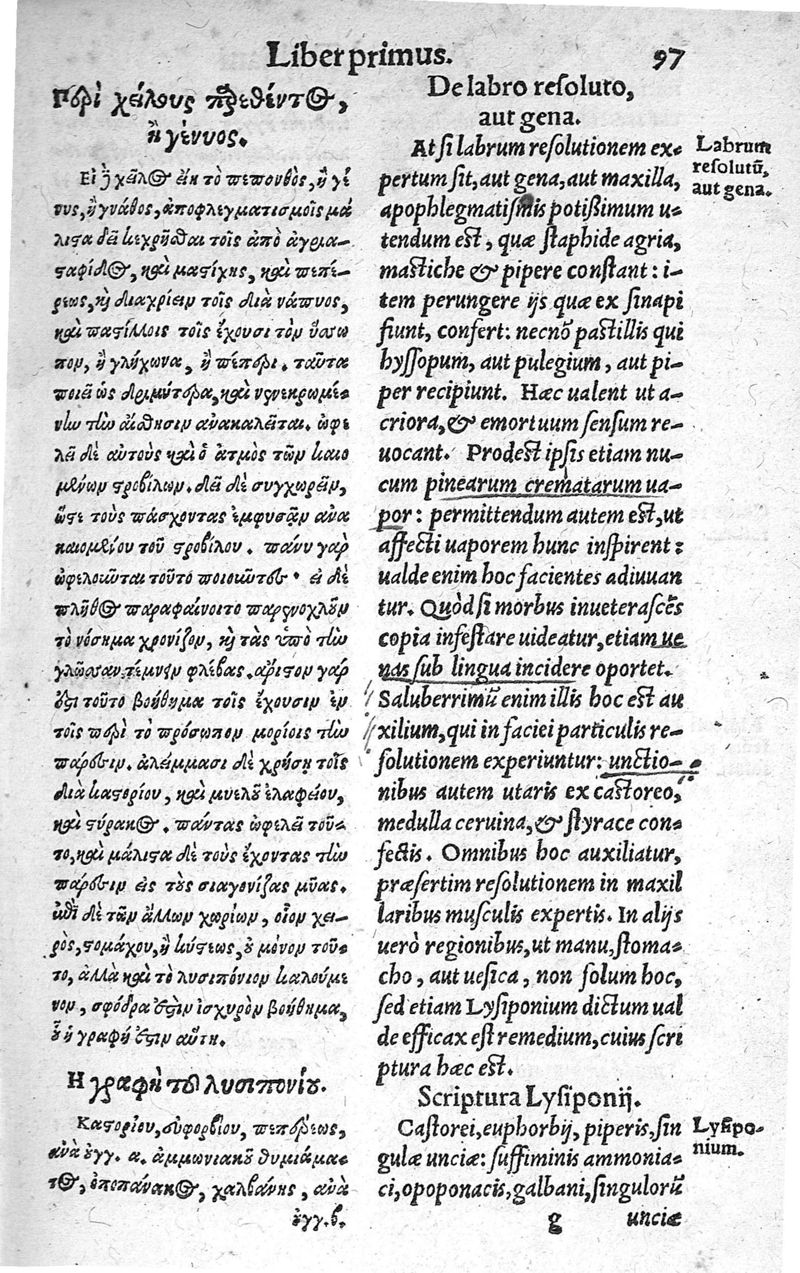 Liber primus.
97
Περὶ χείλους παρεθέντος,
ἢ γένυος.
Εἰ δὲ χεῖλος εἴη τὸ πεπονθὸς, ἢ γέ
νυς, ἢ γνάθος, ἀποφλεγματισμοῖς μά
λιστα δεῖ κεχρῆσθαι τοῖς ἀπὸ ἀγρια-
σαφίδος, καὶ μαστίχης, καὶ πεπέ-
ρεως, καὶ διαχρίειν τοῖς διὰ νάπυος,
καὶ παστίλλοις τοῖς ἔχουσι τὸν ὕσσω
πον, ἢ γλήχωνα, ἢ πέπερι. ταῦτα
ποιεῖ ὡς δριμύτερα, καὶ νενεκρωμέ-
νην τὴν αἴσθησιν ἀνακαλεῖται. ὠφε
λεῖ δὲ αὐτοὺς καὶ ὁ ἀτμὸς τῶν καιο
μένων στροβίλων. δεῖ δὲ συγχωρεῖν,
ὥστε τοὺς πάσχοντας ἐμφυσᾷν ἀνα
καιομένου τοῦ στροβίλου. πάνυ γὰρ
ὠφελοῦνται τοῦτο ποιοῦντες· εἰ δὲ
πλῆθος παραφαίνοιτο παρενοχλοῦν
τὸ νόσημα χρονίζον, καὶ τὰς ὑπὸ τὴν
γλῶσσαν τέμνειν φλέβας. ἄριστον γάρ
ἐστι τοῦτο βοήθημα τοῖς ἔχουσιν ἐν
τοῖς περὶ τὸ πρόσωπον μορίοις τὴν
πάρεσιν. ἀλείμμασι δὲ χρήσῃ τοῖς
διὰ καστορίου, καὶ μυελοῦ ἐλαφείου,
καὶ στύρακος. πάντας ὠφελεῖ τοῦ-
το, καὶ μάλιστα δὲ τοὺς ἔχοντας τὴν
πάρεσιν εἰς τοὺς σιαγονίτας μῦας.
ἐπὶ δὲ τῶν ἄλλων χωρίων, οἷον χει-
ρὸς, στομάχου, ἢ κύστεως, οὐ μόνον τοῦ-
το, ἀλλὰ καὶ τὸ λυσιπόνιον καλούμε
νον, σφόδρα ἐστὶν ἰσχυρὸν βοήθημα,
οὗ ἡ γραφή ἐστιν αὕτη.
Η γραφὴ τοῦ λυσιπονίου.
Καστορίου, εὐφορβίου, πεπέρεως,
ἀνὰ οὐγγ. α. ἀμμωνιακοῦ θυμιάμα-
τος, ὀποπάνακος, χαλβάνης, ἀνὰ
οὐγγ. β.
De labro resoluto,
aut gena.
At si labrum resolutionem ex-
pertum sit, aut gena, aut maxilla,
apophlegmatismis potißimum u-
tendum est, quæ staphide agria,
mastiche & pipere constant: i-
tem perungere ijs quæ ex sinapi
fiunt, confert: necnō pastillis qui
hyssopum, aut pulegium, aut pi-
per recipiunt. Hæc ualent ut a-
criora, & emortuum sensum re-
uocant. Prodest ipsis etiam nu-
cum pinearum crematarum ua-
por: permittendum autem est, ut
affecti uaporem hunc inspirent:
ualde enim hoc facientes adiuuan
tur. Quòd si morbus inueterascēs
copia infestare uideatur, etiam ue
nas sub lingua incidere oportet.
Saluberrimū enim illis hoc est au
xilium, qui in faciei particulis re-
solutionem experiuntur: unctio-
nibus autem utaris ex castoreo,
medulla ceruina, & styrace con-
fectis. Omnibus hoc auxiliatur,
præsertim resolutionem in maxil
laribus musculis expertis. In alijs
uerò regionibus, ut manu, stoma-
cho, aut uesica, non solum hoc,
sed etiam Lysiponium dictum ual
de efficax est remedium, cuius scri
ptura hæc est.
Scriptura Lysiponij.
Castorei, euphorbij, piperis, sin
gulæ unciæ: suffiminis ammonia-
ci, opoponacis, galbani, singulorū
g
unciæ
Labrum
resolutū,
aut gena.
Lysipo-
nium.